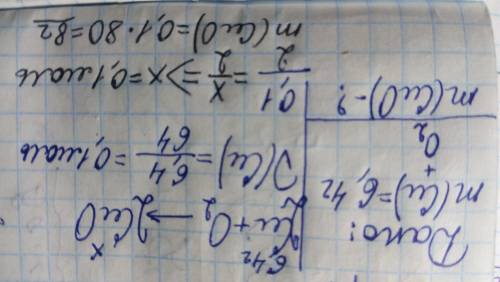 Дано:
m(Cu)=6,4г
+
O₂
m(CuO)-?
6,4г x
2Cu+O₂ → 2CuO
ν(Cu)=6,4/64=0,1моль
0,1/2=x/2 ⇒ x=0,1моль
m(CuO)=0,1·80=8г